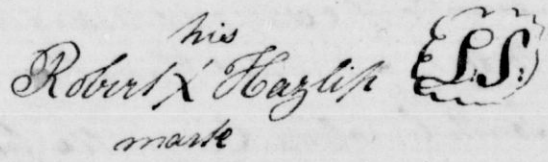 his
Robert X Hazlip (L.S.)
mark